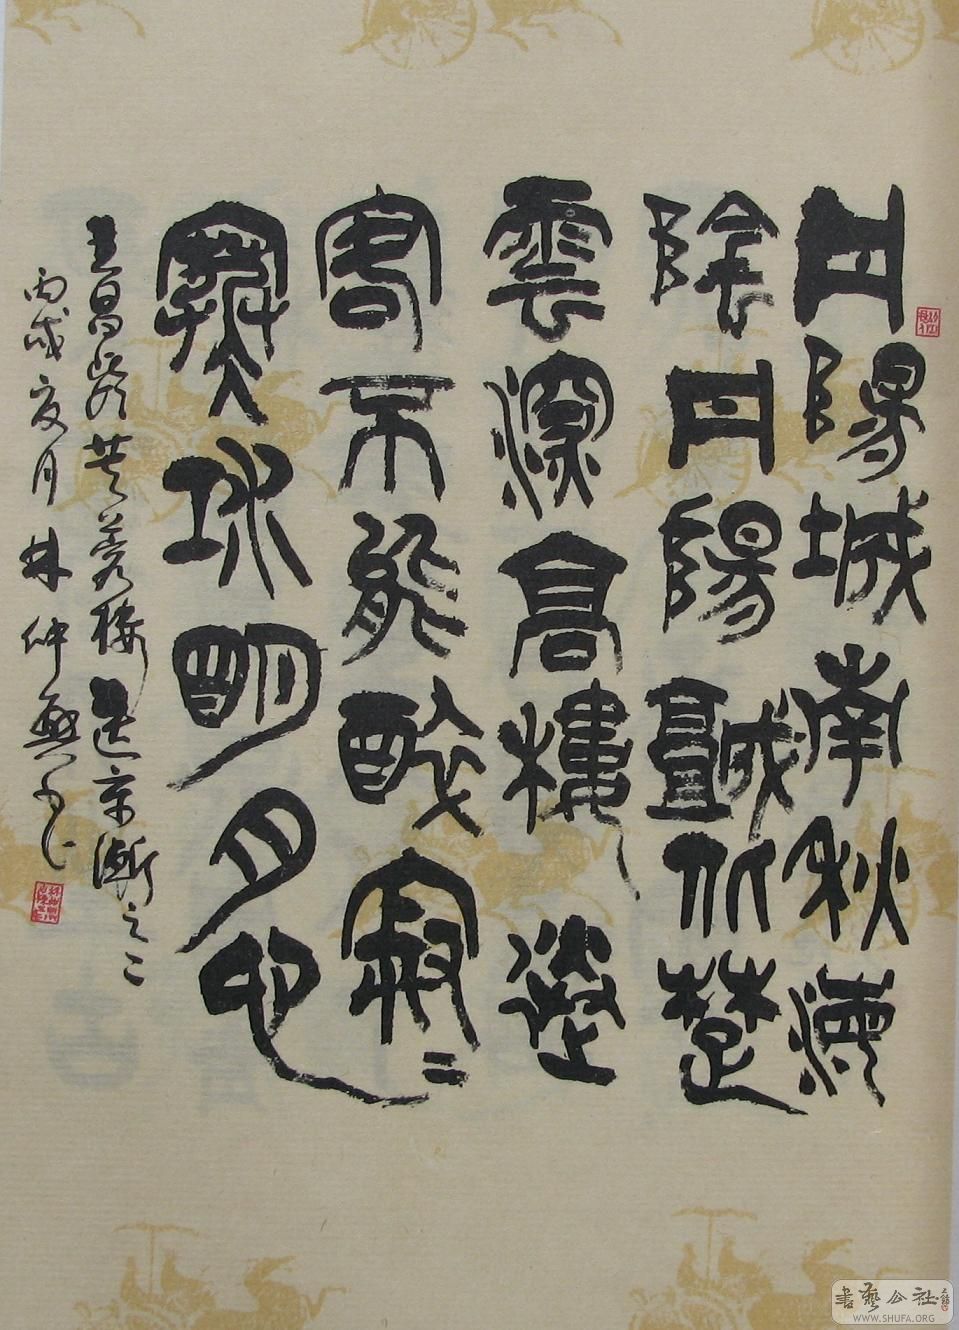 丹陽城南秋海
陰丹陽城北楚
雲深高樓送
客不能醉寂〻
寒江明月心
王昌齡芙蓉樓送辛漸之二
丙戌夏月林仲興書
書藝公社
WWW.SHUFA.ORG